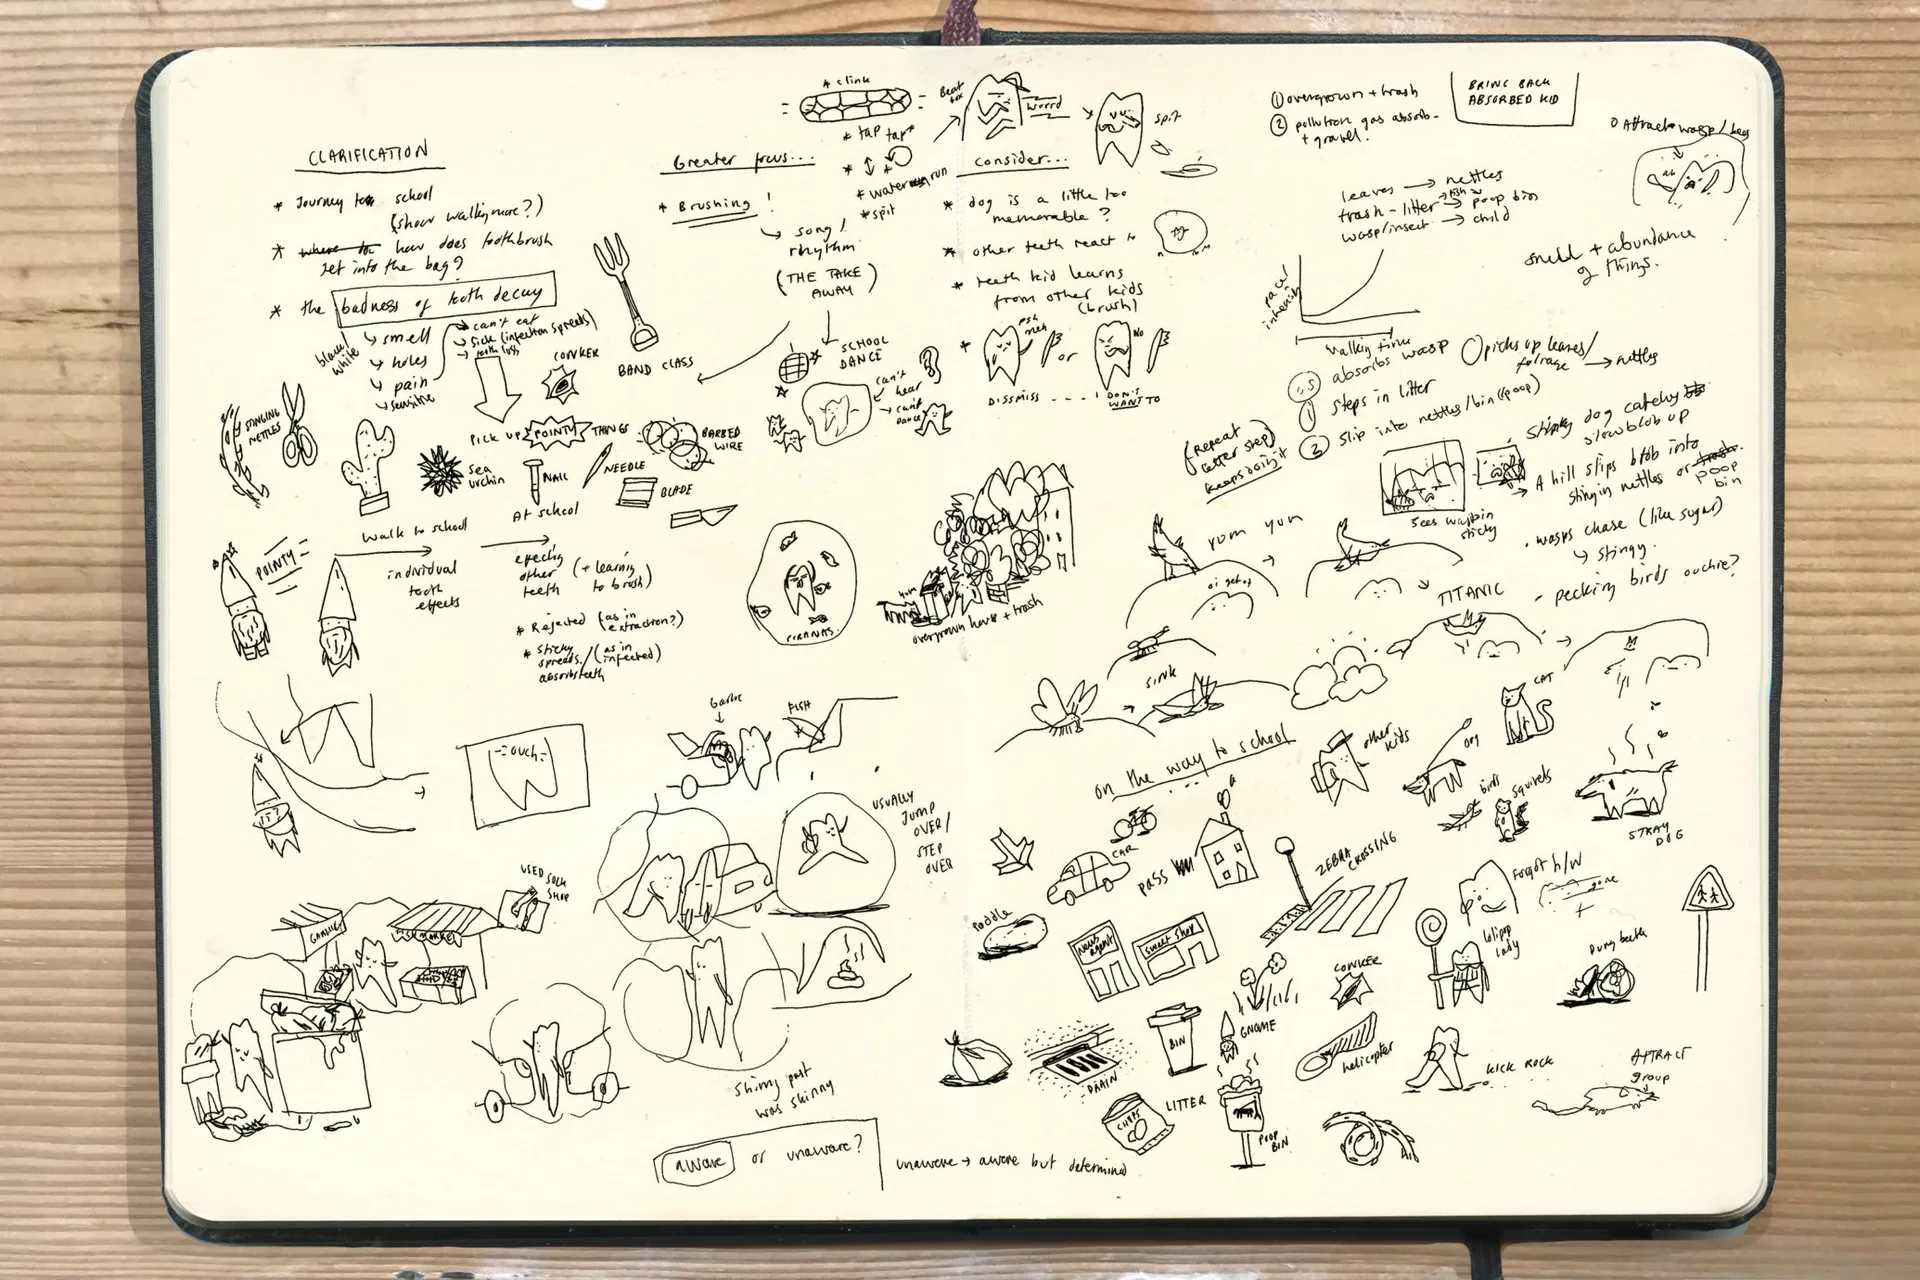 CLARIFICATION
* Journey to school
(show walking more?)
* how does toothbrush
get into the bag?
* the badness of tooth decay
black/
white
smell
holes
pain
sensitive
can't eat
sick (infection spreads)
tooth loss
STINGING
NETTLES
CONKER
PICK UP POINTY THINGS
Sea
urchin
NAIL
NEEDLE
BARBED
WIRE
BLADE
BAND CLASS
POINTY
walk to school
individual
tooth
effects
At school
effecting
other
teeth
(+ learning
to brush)
* Rejected (as in
extraction?)
* sticky
spreads/ (as in
infected)
absorbs teeth
Greater focus...
* Brushing!
song/
rhythm
(THE TAKE
AWAY)
SCHOOL
DANCE
can't
hear
can't
dance
* clink
* tap tap *
* water run
* spit
Beat
box
word
spit
consider...
* dog is a little too
memorable?
* other teeth react to
* teeth kid learns
from other kids
(brush)
psh
meh
or
NO
DISSMISS ---- I DON'T
WANT TO
① overgrown + trash
② pollution gas absorb-
+ gravel.
BRING BACK
ABSORBED KID
Attract wasp/bees
leaves → nettles
trash - litter → poop bin
wasp/insect → child
smell + abundance
of things.
pace/
intensity
walking time
absorbs wasp
picks up leaves/
foliage → nettles
① steps in litter
② slip into nettles/bin (poop)
(Repeat
litter step)
keeps doing it
stinky dog catchy
slow blob up
→ A hill slips blob into
stingin nettles or
poop
bin
sees waspbin
sticky
. wasps chase (like sugar)
↳ stingy.
- pecking birds ouchie?
YUM YUM
oi get off
TITANIC
SINK
PIRANAS
YUM
overgrown house + trash
ouch
Garlic
FISH
USUALLY
JUMP
OVER/
STEP
OVER
USED SOCK
SHOP
GARLIC
FISH MARKET
Shiny part
was skinny
aware or unaware?
unaware → aware but determined
on the way to school
other
kids
dog
CAT
birds
squirrels
STRAY
DOG
CAR
pass
ZEBRA
CROSSING
forgot h/w
gone
PUDDLE
news
agent
sweet shop
lolipop
lady
Dung beetle
CONKER
GNOME
BIN
DRAIN
helicopter
KICK ROCK
ATTRACT
group
CHIPS
LITTER
POOP
BIN